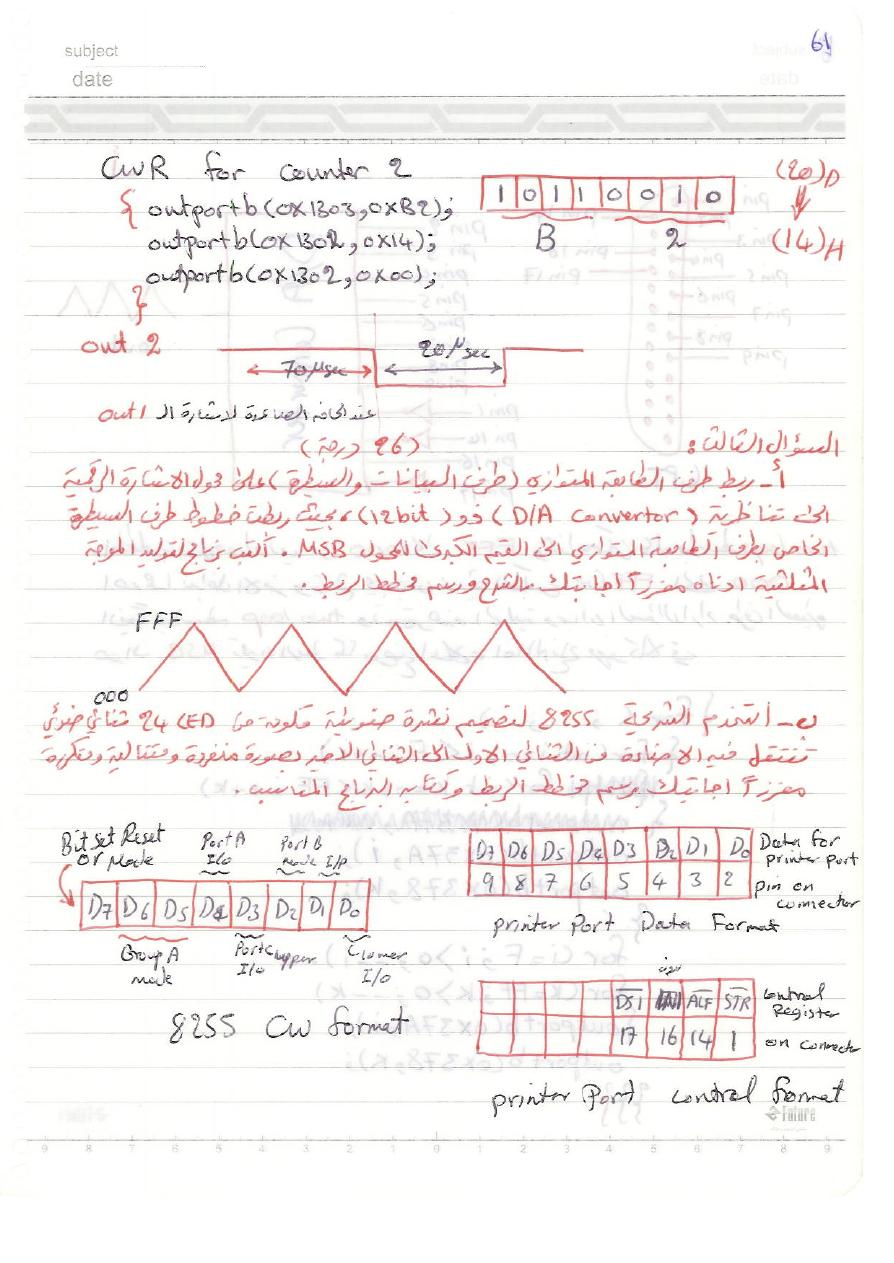 61
subject
date
CWR for counter 2
1 0 1 1 0 0 1 0
B 2
(20)D
(14)H
{ outportb(0x1303,0xB2);
outportb(0x1302,0x14);
outportb(0x1302,0x00);
}
out 2
70 μsec
20 μsec
عند الحافه الصاعدة لاشارة الـ out 1
السؤال الثالث: (26 درجة)
أ- ربط طرف الطابعة المتوازي (طرف البيانات والسيطرة) على محول الاشارة الرقمية
الى تناظرية (D/A convertor) ذو (12bit)، بحيث ربطت خطوط طرف السيطرة
الخاص بطرف الطابعة المتوازي الى القيم الكبرى للمحول MSB. أكتب برنامج لتوليد الموجة
المثلثية ادناه معززاً اجابتك بالشرح ورسم مخطط الربط.
FFF
000
ب- أستخدم الشريحة 8255 لتصميم نشرة ضوئية مكونة من 24 LED ثنائي ضوئي
تنتقل فيه الاضاءة من الثنائي الاول الى الثنائي الاخير بصورة منفردة ومتتالية ومتكررة
معززاً اجابتك برسم مخطط الربط وكتابه البرنامج المناسب.
Bit set Reset
or Mode
Port A
I/O
Port B
Mode I/P
D7 D6 D5 D4 D3 D2 D1 D0
Group A
mode
Port C upper
I/O
C lower
I/O
8255 CW format
D7 D6 D5 D4 D3 D2 D1 D0
9 8 7 6 5 4 3 2
Data for
printer port
pin on
connector
printer Port Data Format
DSI ALF STR
17 16 14 1
control
Register
on connector
printer Port control format
Future
9 8 7 6 5 4 3 2 1 0 1 2 3 4 5 6 7 8 9